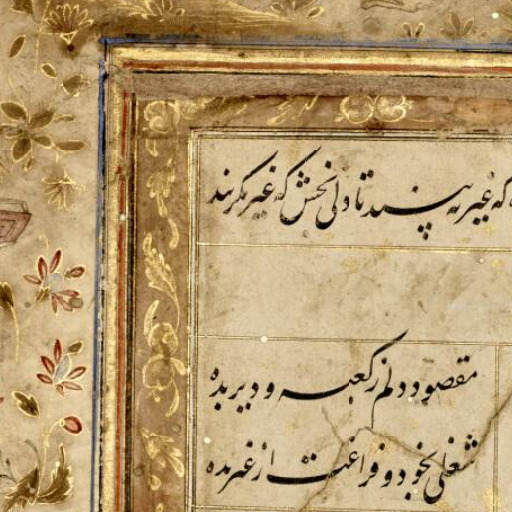 که غیر نه پسندد تا دلی بخش که غیر نگزیند
مقصود دلم ز کعبه و دیر بده
شغلی بخود و فراغت از غیر بده